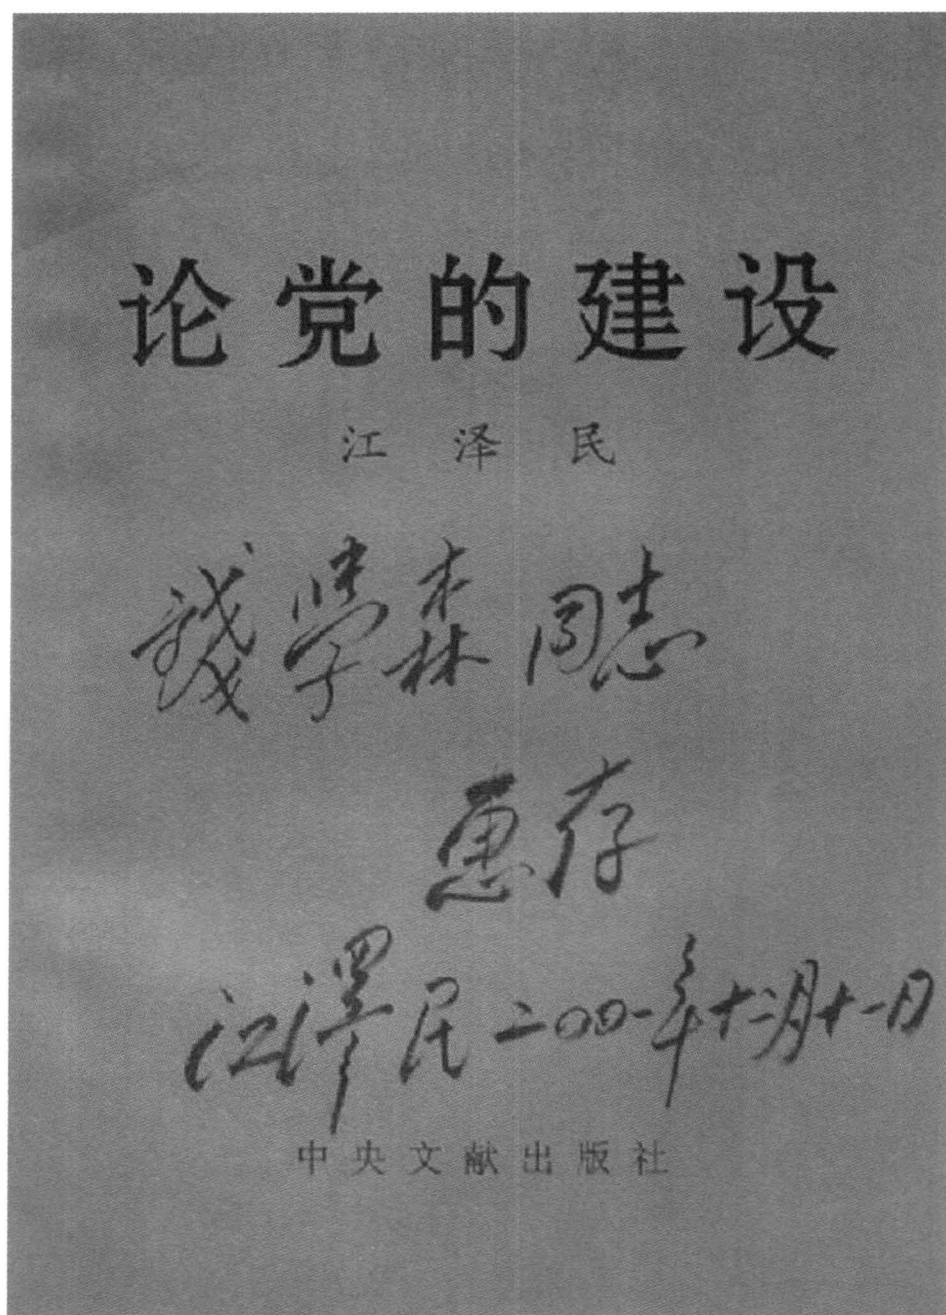 论党的建设
江泽民
錢學森同志
惠存
江澤民 二〇〇一年十二月十一日
中央文献出版社